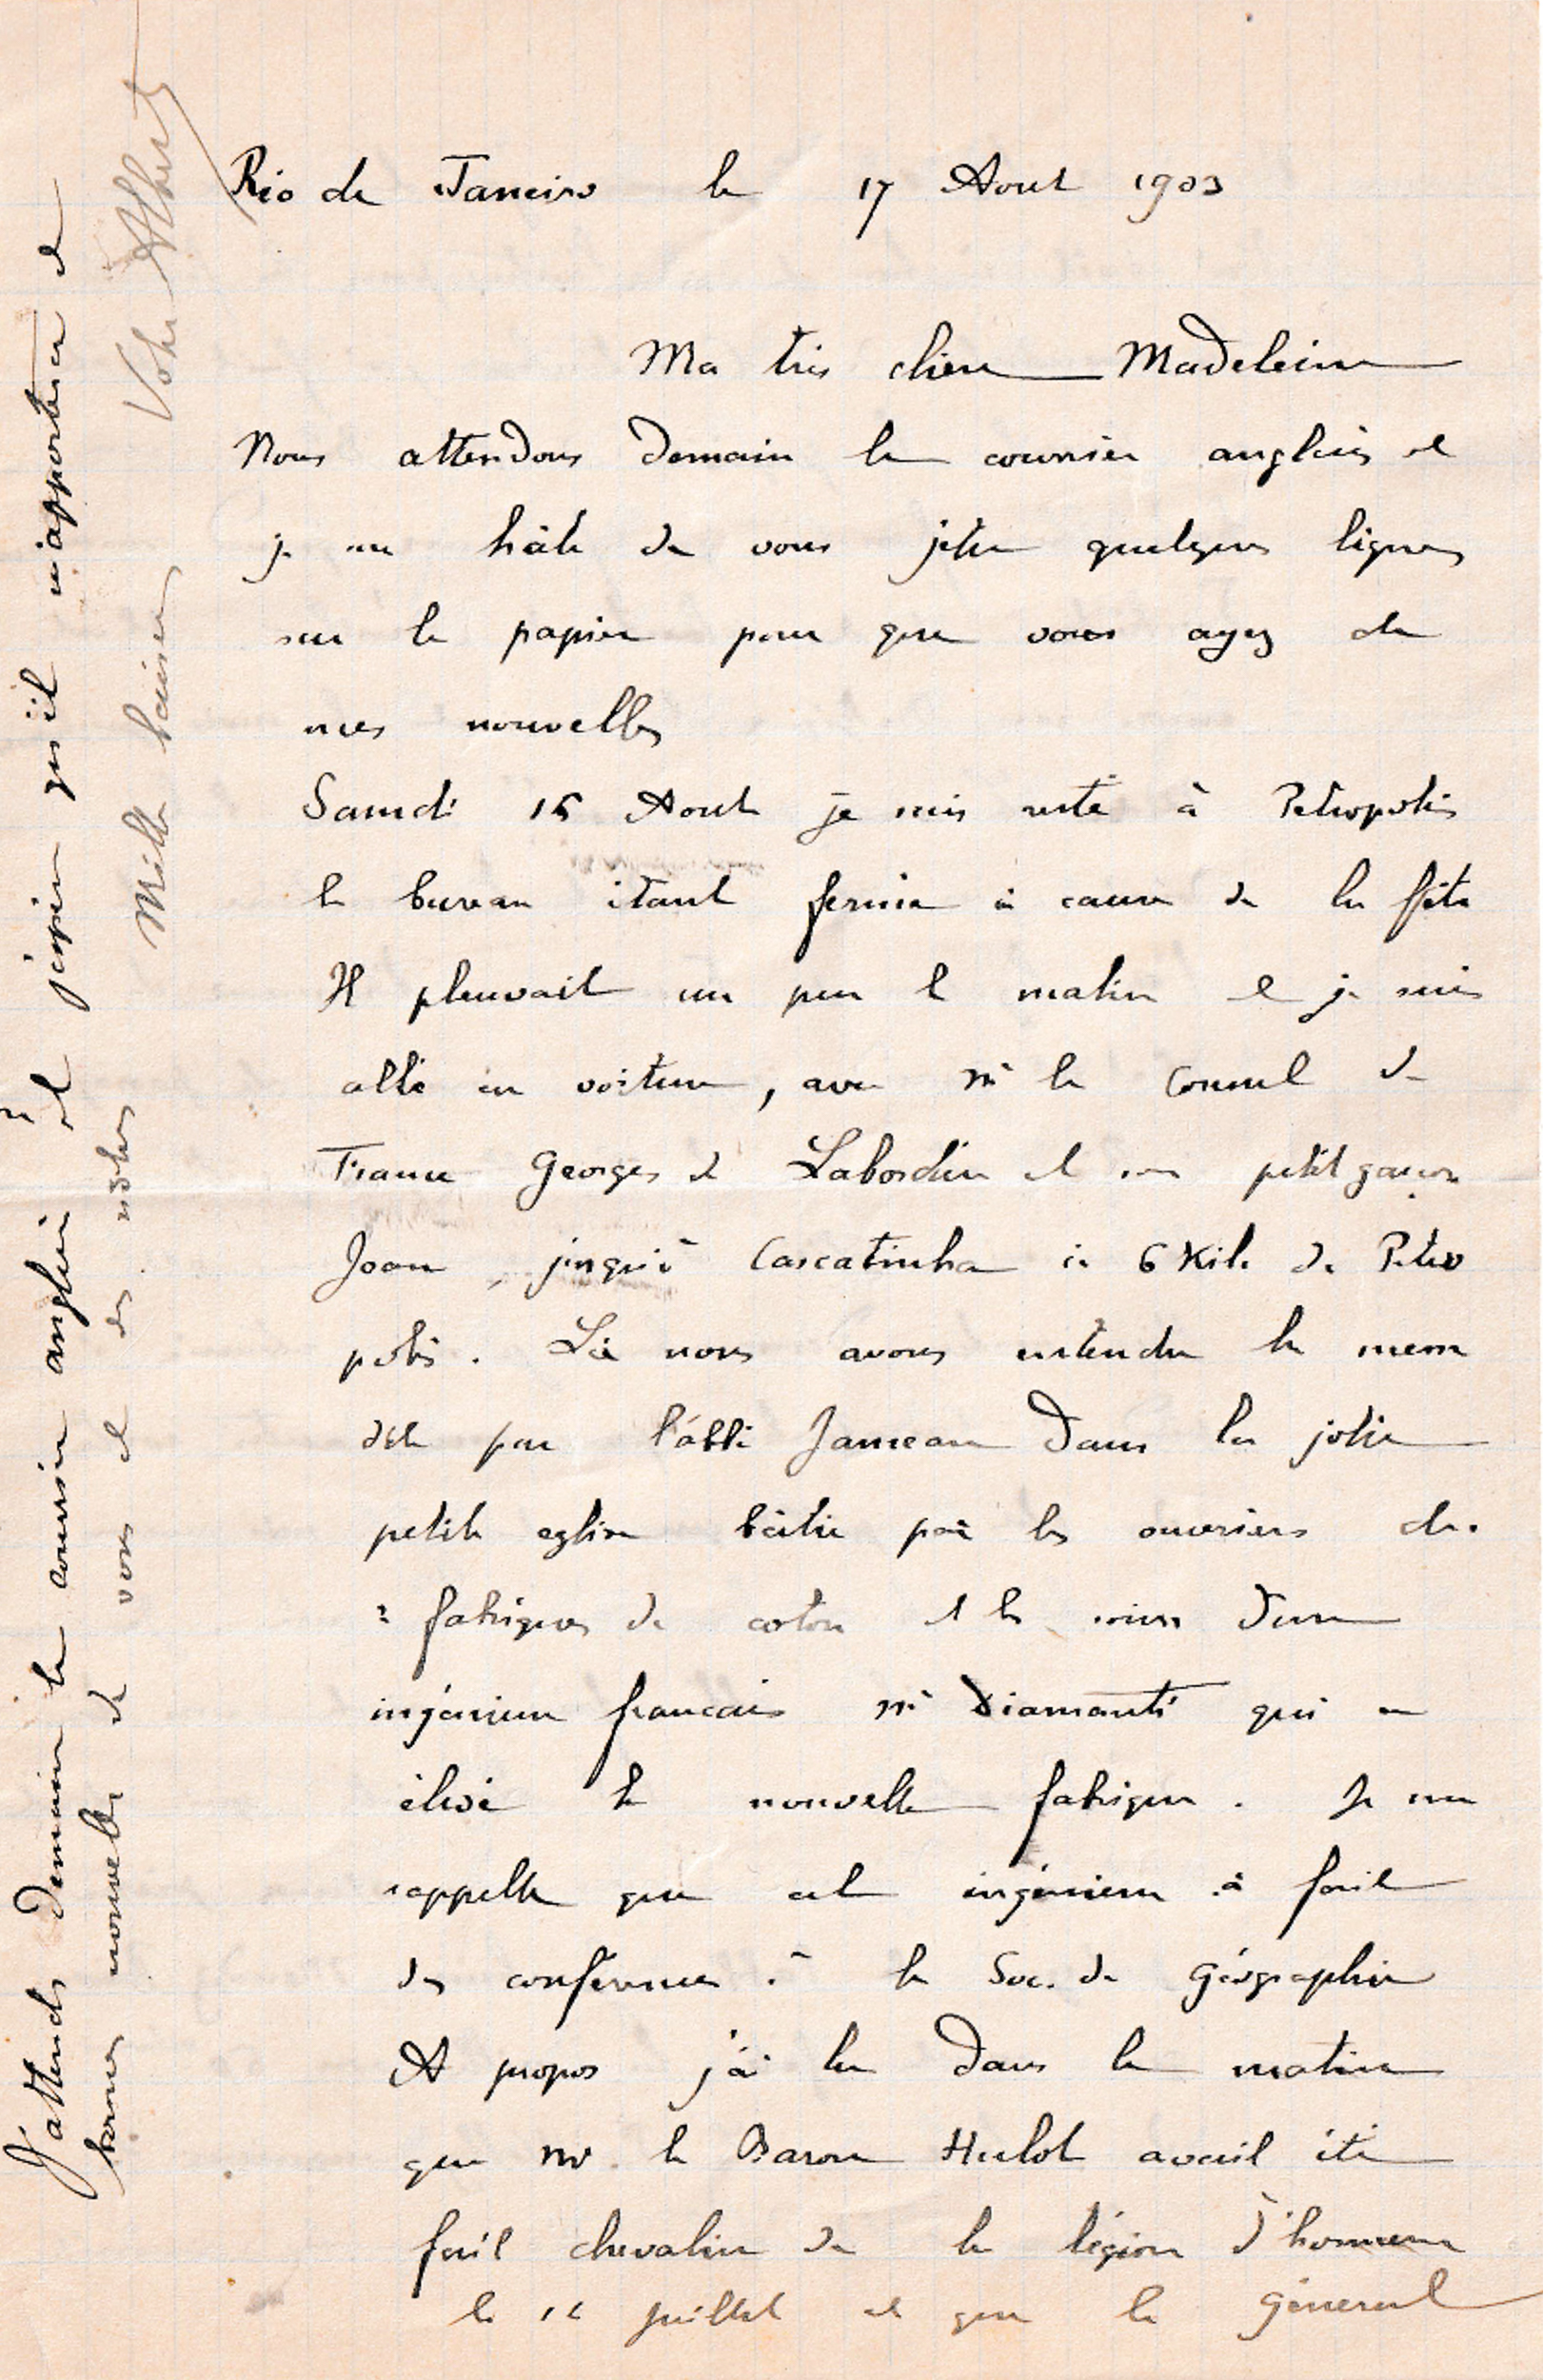 Rio de Janeiro le 17 Aout 1903
Ma très chère Madeleine
Nous attendons demain le courrier anglais et
je me hâte de vous jeter quelques lignes
sur le papier pour que vous ayez de
mes nouvelles
Samedi 15 Aout je suis resté à Petropolis
le bureau étant fermé à cause de la fête
Il pleuvait un peu le matin et je suis
allé en voiture, avec Mr le Consul de
France Georges de Labordère et son petit garçon
Jean, jusqu'à Cascatinha à 6 Kil. de Petro
polis. Là nous avons entendu la messe
dite par l'abbé dans la jolie
petite eglise bâtie par les ouvriers de
fabriques de coton et les soins d'un
ingénieur francais Mr Diamanti qui a
élevé la nouvelle fabrique. Je me
rappelle que cet ingénieur à fait
des conférences à la Soc. de Géographie
A propos j'ai lu dans le matin
que Mr le Baron Hulot avait été
fait chevalier de la légion d'honneur
le 14 juillet et que le Général
J'attends demain le courrier anglais et j'espère qu'il m'apportera de
bonnes nouvelles de vous et des nôtres
Mille baisers Votre Albert